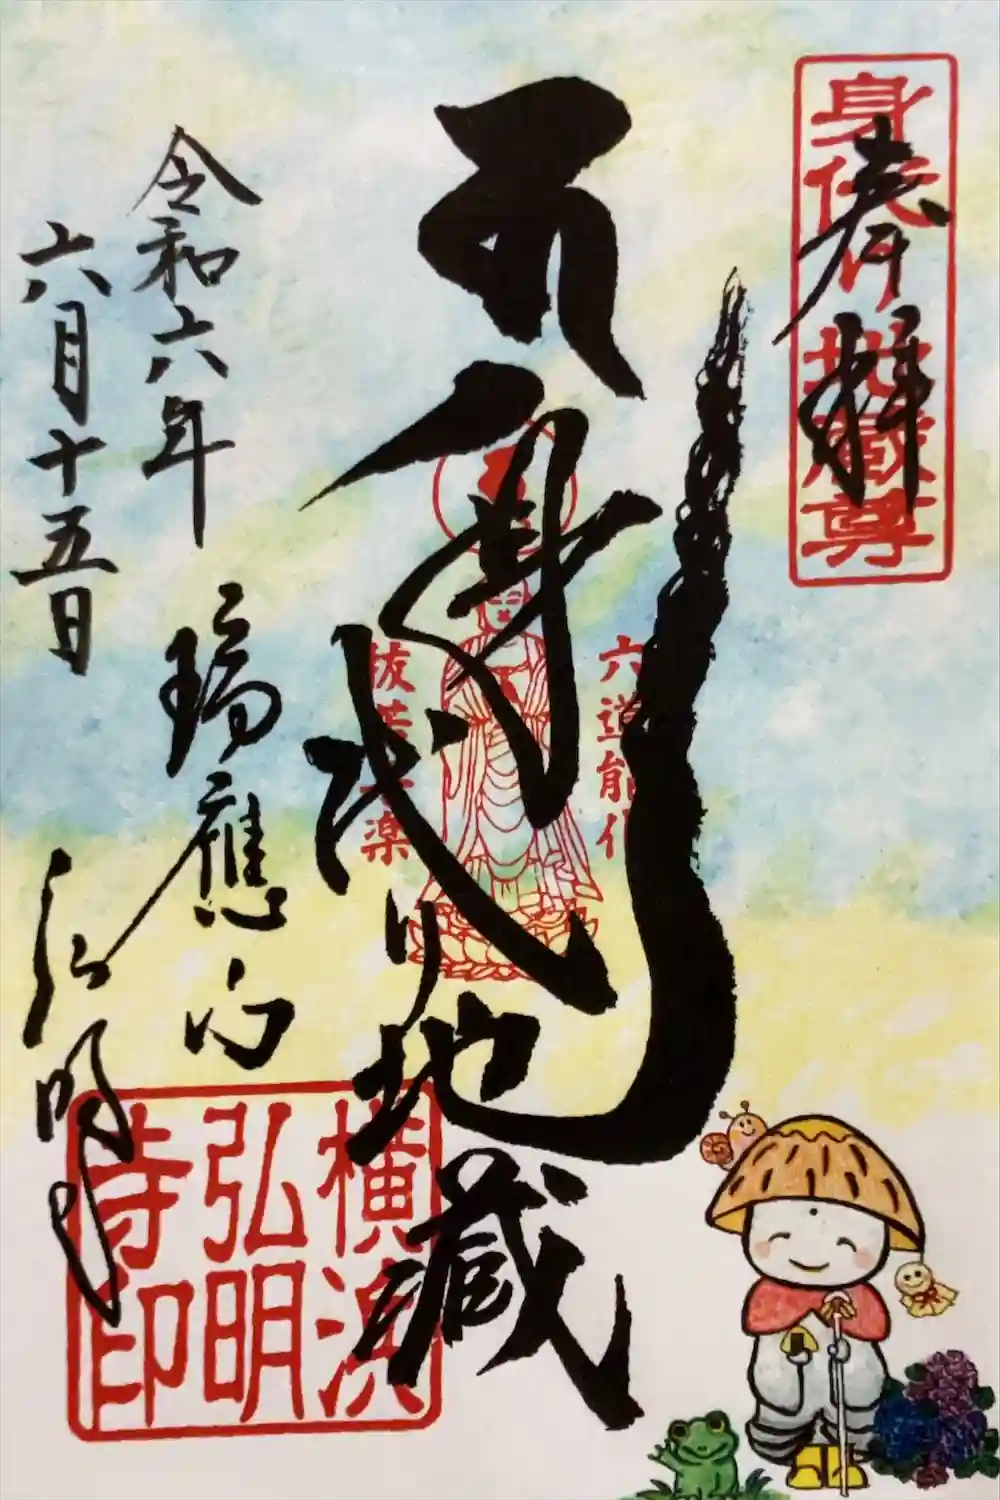 奉拝
身代り地蔵尊
身代り地蔵
六道能化
抜苦与楽
令和六年
六月十五日
瑞應山
弘明寺
横浜
弘明
寺印